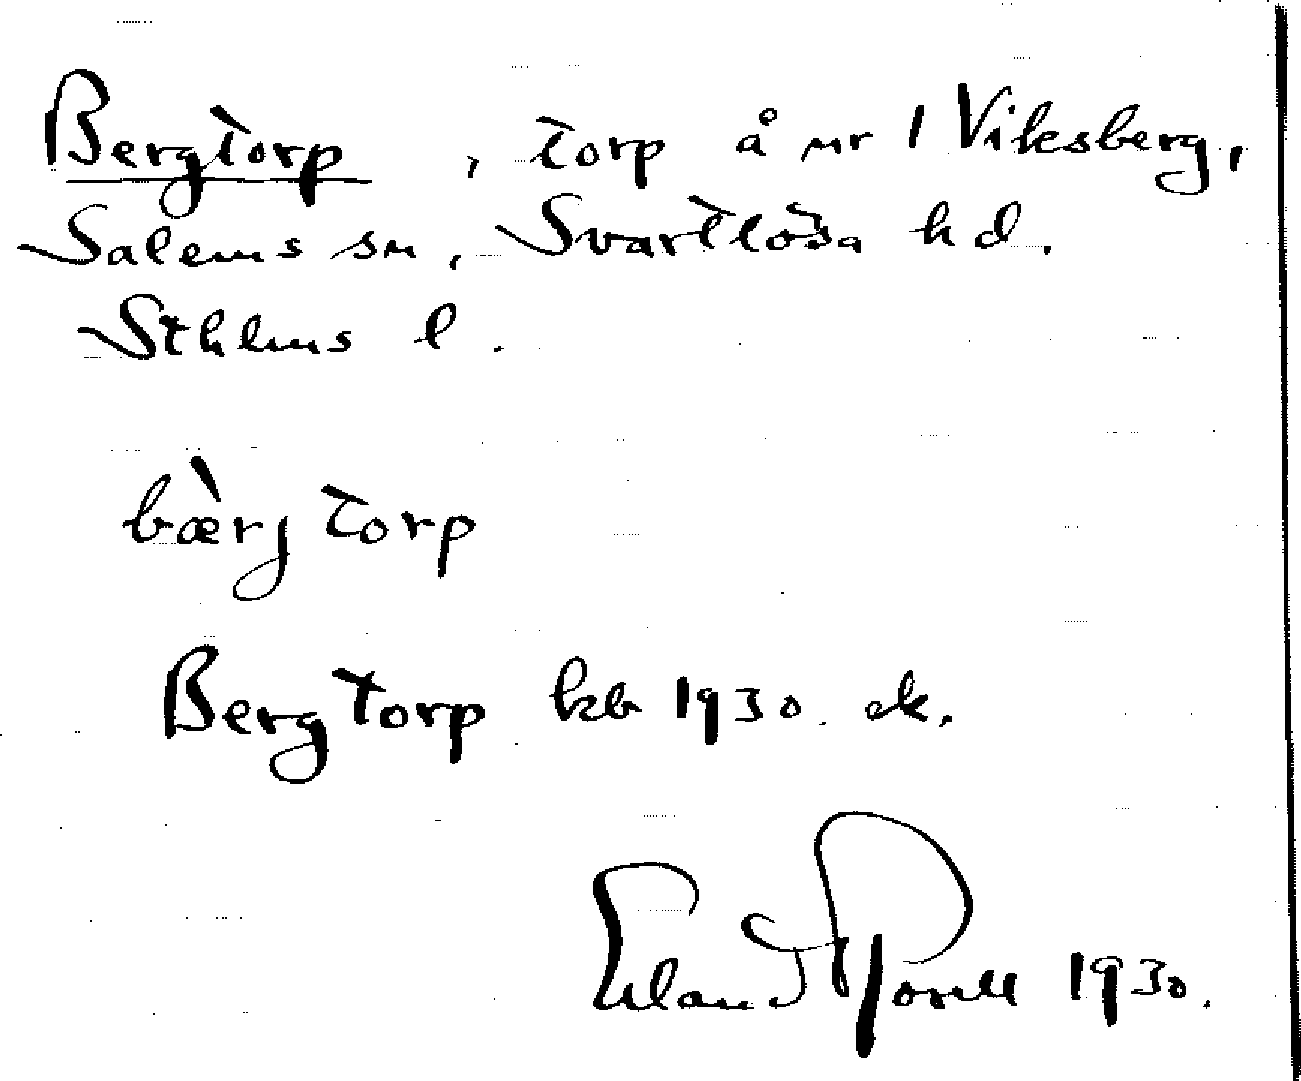 Bergtorp, torp å nr 1 Viksberg,
Salems sn, Svartlösa hd.
Sthlms l.
bæ̀rj torp
Bergtorp kb 1930. ek.
Erland 1930.